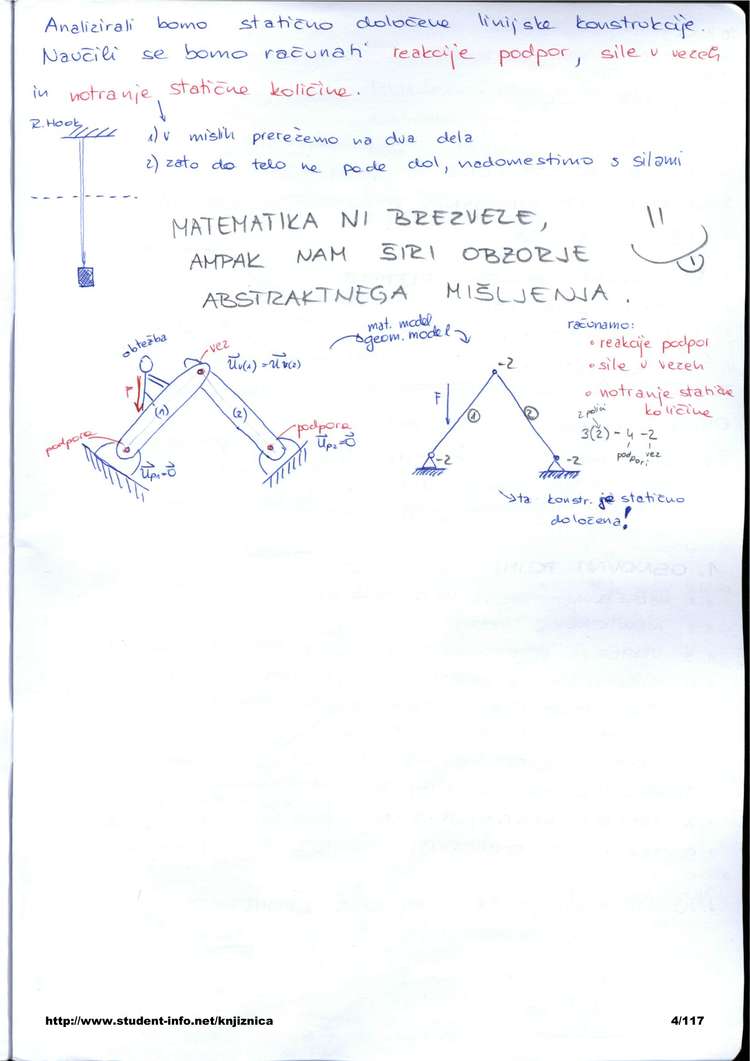 Analizirali bomo statično določene linijske konstrukcije.
Naučili se bomo računati reakcije podpor, sile v vezeh
in notranje statične količine.
R. Hook
1) v mislih prerežemo na dva dela
2) zato do telo ne pade dol, nadomestimo s silami
MATEMATIKA NI BREZVEZE,
AMPAK NAM ŠIRI OBZORJE
ABSTRAKTNEGA MIŠLJENJA.
obtežba
vez
u v(1) = u v(2)
F
(1)
(2)
podpora
podpora
u p1 = 0
u p2 = 0
mat. model
geom. model
F
1
2
-2
-2
-2
računamo:
• reakcije podpor
• sile v vezeh
• notranje statične
količine
3(2) - 4 - 2
podpori
vez
ta konstr. je statično
določena!
http://www.student-info.net/knjiznica
4/117